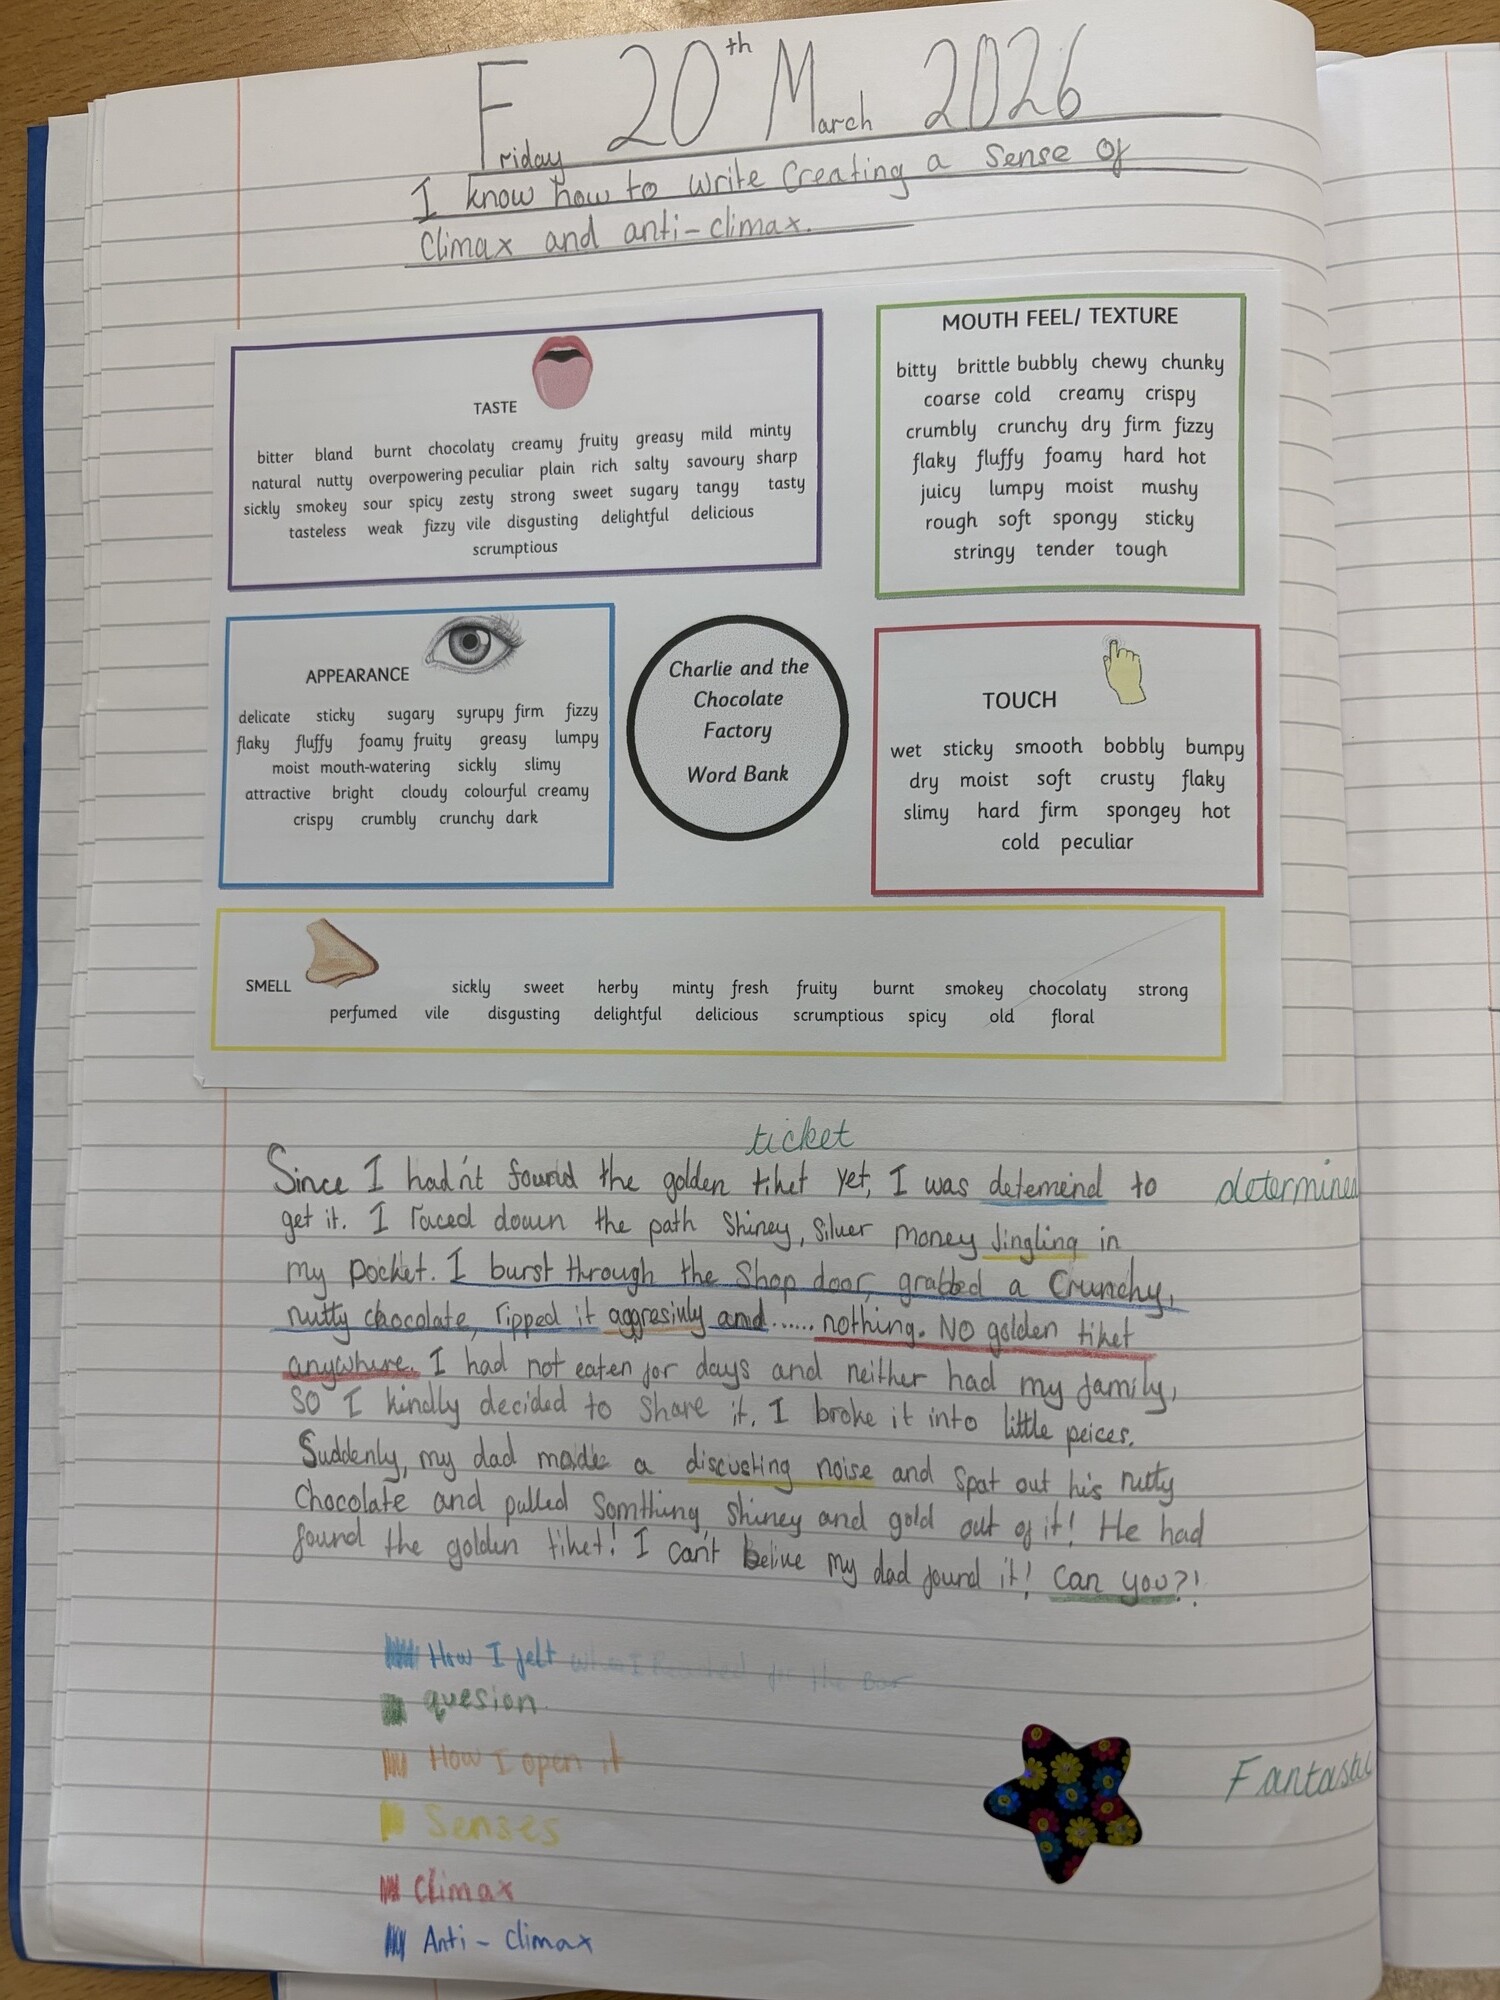 Friday 20th March 2026
I know how to write creating a sense of
climax and anti-climax.
TASTE
bitter bland burnt chocolaty creamy fruity greasy mild minty
natural nutty overpowering peculiar plain rich salty savoury sharp
sickly smokey sour spicy zesty strong sweet sugary tangy tasty
tasteless weak fizzy vile disgusting delightful delicious
scrumptious
MOUTH FEEL/ TEXTURE
bitty brittle bubbly chewy chunky
coarse cold creamy crispy
crumbly crunchy dry firm fizzy
flaky fluffy foamy hard hot
juicy lumpy moist mushy
rough soft spongy sticky
stringy tender tough
APPEARANCE
delicate sticky sugary syrupy firm fizzy
flaky fluffy foamy fruity greasy lumpy
moist mouth-watering sickly slimy
attractive bright cloudy colourful creamy
crispy crumbly crunchy dark
Charlie and the
Chocolate
Factory
Word Bank
TOUCH
wet sticky smooth bobbly bumpy
dry moist soft crusty flaky
slimy hard firm spongey hot
cold peculiar
SMELL sickly sweet herby minty fresh fruity burnt smokey chocolaty strong
perfumed vile disgusting delightful delicious scrumptious spicy old floral
ticket
Since I had'nt found the golden tiket yet, I was detemend to determined
get it. I raced down the path shiney, silver money Jingling in
my pocket. I burst through the shop door, grabbed a crunchy,
nutty chocolate, ripped it aggresivly and...... nothing. No golden tiket
anywhere. I had not eaten for days and neither had my family,
so I kindly decided to share it. I broke it into little peices.
Suddenly, my dad made a discusting noise and spat out his nutty
chocolate and pulled somthing, shiney and gold out of it! He had
found the golden tiket! I can't belive my dad found it! Can you?!
How I felt for the Bar
quesion
How I open it
Senses
Climax
Anti-climax
Fantastic